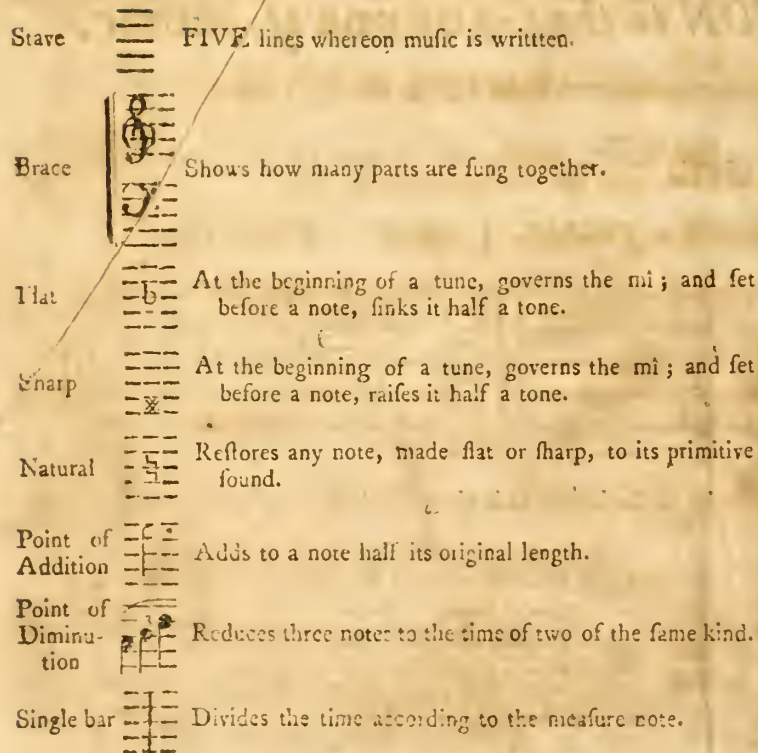 Stave FIVE lines whereon muſic is writtten.
Brace Shows how many parts are ſung together.
Flat At the beginning of a tune, governs the mi; and ſet
before a note, ſinks it half a tone.
Sharp At the beginning of a tune, governs the mi; and ſet
before a note, raiſes it half a tone.
Natural Reſtores any note, made flat or ſharp, to its primitive
ſound.
Point of
Addition Adds to a note half its original length.
Point of
Diminu-
tion Reduces three notes to the time of two of the ſame kind.
Single bar Divides the time according to the meaſure note.